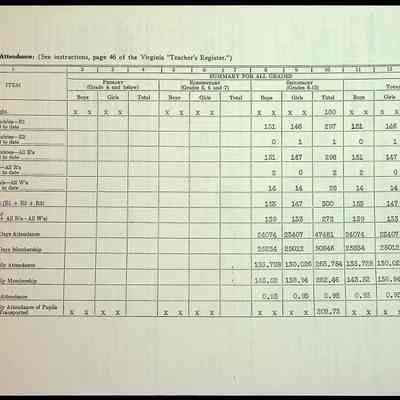 Attendance: (See instructions, page 46 of the Virginia "Teacher's Register.")
1 2 3 4 5 6 7 8 9 10 11 12
SUMMARY FOR ALL GRADES
ITEM
PRIMARY (Grade 4 and below)
ELEMENTARY (Grades 5, 6 and 7)
SECONDARY (Grades 8-12)
Total
Boys Girls Total Boys Girls Total Boys Girls Total Boys Girls
x x x x x x x x x x x x 180 x x x x
to date 151 146 297 151 146
to date 0 1 1 0 1
All R's to date 151 147 298 151 147
All R's to date 2 0 2 2 0
All W's to date 14 14 28 14 14
(R1 + R2 + R3) 153 147 300 153 147
+ All R's - All W's) 139 133 272 139 133
Days Attendance 24074 23407 47481 24074 23407
Days Membership 25012 25012
Attendance 135.728 130.026 265.754 135.728
Membership 138.94
Attendance 0.93 0.93 0.93 0.93
Attendance of Pupils Transported x x x x x x x x x x x x x x x